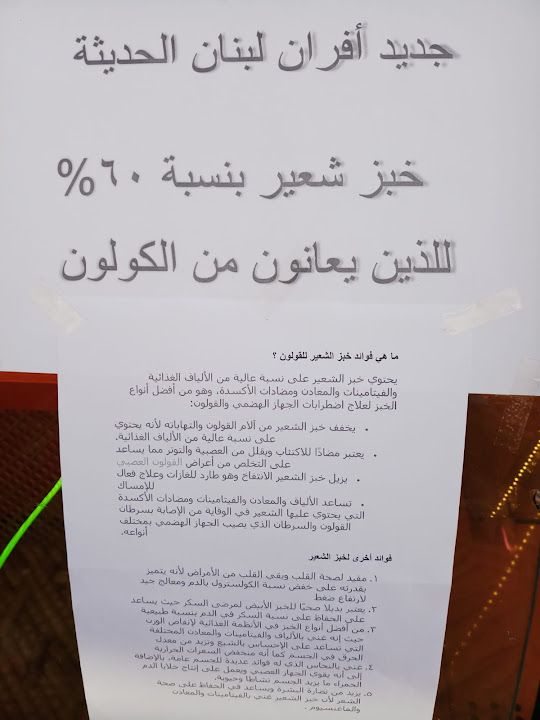 جديد أفران لبنان الحديثة
خبز شعير بنسبة ٦٠%
للذين يعانون من الكولون
ما هي فوائد خبز الشعير للقولون ؟
يحتوي خبز الشعير على نسبة عالية من الألياف الغذائية
والفيتامينات والمعادن ومضادات الأكسدة، وهو من أفضل أنواع
الخبز لعلاج اضطرابات الجهاز الهضمي والقولون:
• يخفف خبز الشعير من آلام القولون والتهاباته لأنه يحتوي
على نسبة عالية من الألياف الغذائية.
• يعتبر مضادًا للاكتئاب ويقلل من العصبية والتوتر مما يساعد
على التخلص من أعراض القولون العصبي
• يزيل خبز الشعير الانتفاخ وهو طارد للغازات وعلاج فعال
للإمساك
• تساعد الألياف والمعادن والفيتامينات ومضادات الأكسدة
التي يحتوي عليها الشعير في الوقاية من الإصابة بسرطان
القولون والسرطان الذي يصيب الجهاز الهضمي بمختلف
أنواعه.
فوائد أخرى لخبز الشعير
١. مفيد لصحة القلب ويقي القلب من الأمراض لأنه يتميز
بقدرته على خفض نسبة الكولسترول بالدم ومعالج جيد
لارتفاع ضغط
٢. يعتبر بديلا صحيًا للخبز الأبيض لمرضى السكر حيث يساعد
على الحفاظ على نسبة السكر في الدم بنسبة طبيعية
٣. من أفضل أنواع الخبز في الأنظمة الغذائية لإنقاص الوزن
حيث إنه غني بالألياف والفيتامينات والمعادن المختلفة
التي تساعد على الإحساس بالشبع وتزيد من معدل
الحرق في الجسم كما أنه منخفض السعرات الحرارية
٤. غني بالنحاس الذي له فوائد عديدة للجسم عامة، بالإضافة
إلى أنه يقوي الجهاز العصبي ويعمل على إنتاج خلايا الدم
الحمراء ما يزيد الجسم نشاطا وحيوية.
٥. يزيد من نضارة البشرة ويساعد في الحفاظ على صحة
الشعر لأن خبز الشعير غني بالفيتامينات والمعادن
والماغنسيوم .